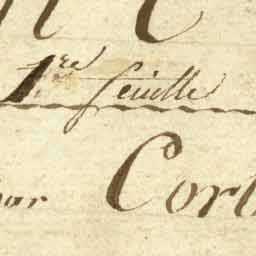 1.re feuille
par Cort